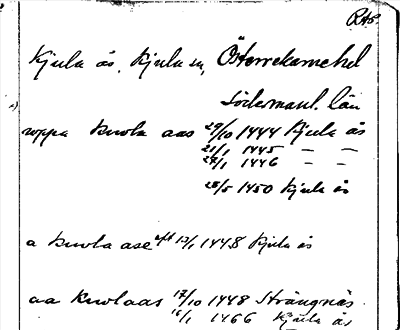 RAP
Kjula ås, Kjula sn, Österrekarnehd
Södermanl. län
uppa kwla aas 29/10 1444 Kjula ås
21/1 1445 — —
24/1 1446 — —
25/5 1450 Kjula ås
a kwla ase 13/1 1448 Kjula ås
aa Kwlaas 17/10 1448 Strängnäs
16/1 1466 Kjula ås